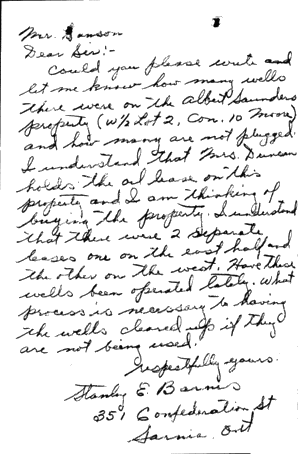 Mr. Ganson
Dear Sir:-
Could you please write and
let me know how many wells
there were on the Albert Saunders
property (W½ Lot 2, Con. 10 Moore)
and how many are not plugged.
I understand that Mrs. Duncan
holds the oil lease on this
property and I am thinking of
buying the property. I understand
that there were 2 separate
leases one on the east half and
the other on the west. Have these
wells been operated lately. What
process is necessary to having
the wells cleared up if they
are not being used.
respectfully yours.
Stanley E. Barnes
351 Confederation St
Sarnia. Ont